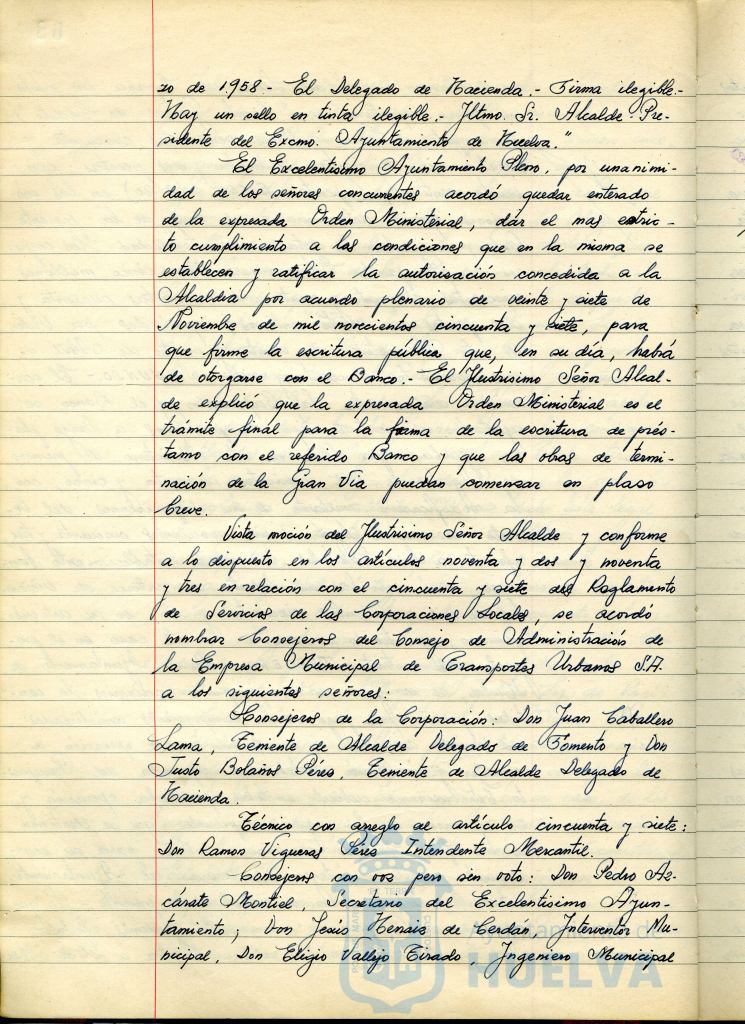 zo de 1.958 - El Delegado de Hacienda.- Firma ilegible.-
Hay un sello en tinta ilegible.- Iltmo. Sr. Alcalde-Pre-
sidente del Excmo. Ayuntamiento de Huelva."
El Excelentísimo Ayuntamiento Pleno, por unanimi-
dad de los señores concurrentes acordó quedar enterado
de la expresada Orden Ministerial, dar el mas estric-
to cumplimiento a las condiciones que en la misma se
establecen y ratificar la autorisación concedida a la
Alcaldia por acuerdo plenario de veinte y siete de
Noviembre de mil novecientos cincuenta y siete, para
que firme la escritura pública que, en su día, habrá
de otorgarse con el Banco.- El Ilustrisimo Señor Alcal-
de explicó que la expresada Orden Ministerial es el
trámite final para la firma de la escritura de prés-
tamo con el referido Banco y que las obras de termi-
nación de la Gran Via puedan comenzar en plaso
breve.
Vista moción del Ilustrisimo Señor Alcalde y conforme
a lo dispuesto en los artículos noventa y dos y noventa
y tres en relación con el cincuenta y siete del Reglamento
de Servicios de las Corporaciones Locales, se acordó
nombrar Consejeros del Consejo de Administración de
la Empresa Municipal de Transportes Urbanos S.A.
a los siguientes señores:
Consejeros de la Corporación: Don Juan Caballero
Lama, Teniente de Alcalde Delegado de Fomento y Don
Justo Bolaños Pérez, Teniente de Alcalde Delegado de
Hacienda.
Técnico con arreglo al artículo cincuenta y siete:
Don Ramon Vigueras Pérez Intendente Mercantil.
Consejeros con vos pero sin voto: Don Pedro Az-
cárate Montiel, Secretario del Excelentísimo Ayun-
tamiento; Don Jesús Henais de Cerdán, Interventor Mu-
nicipal, Don Eligio Vallejo Tirado, Ingeniero Municipal
Ayuntamiento de
HUELVA